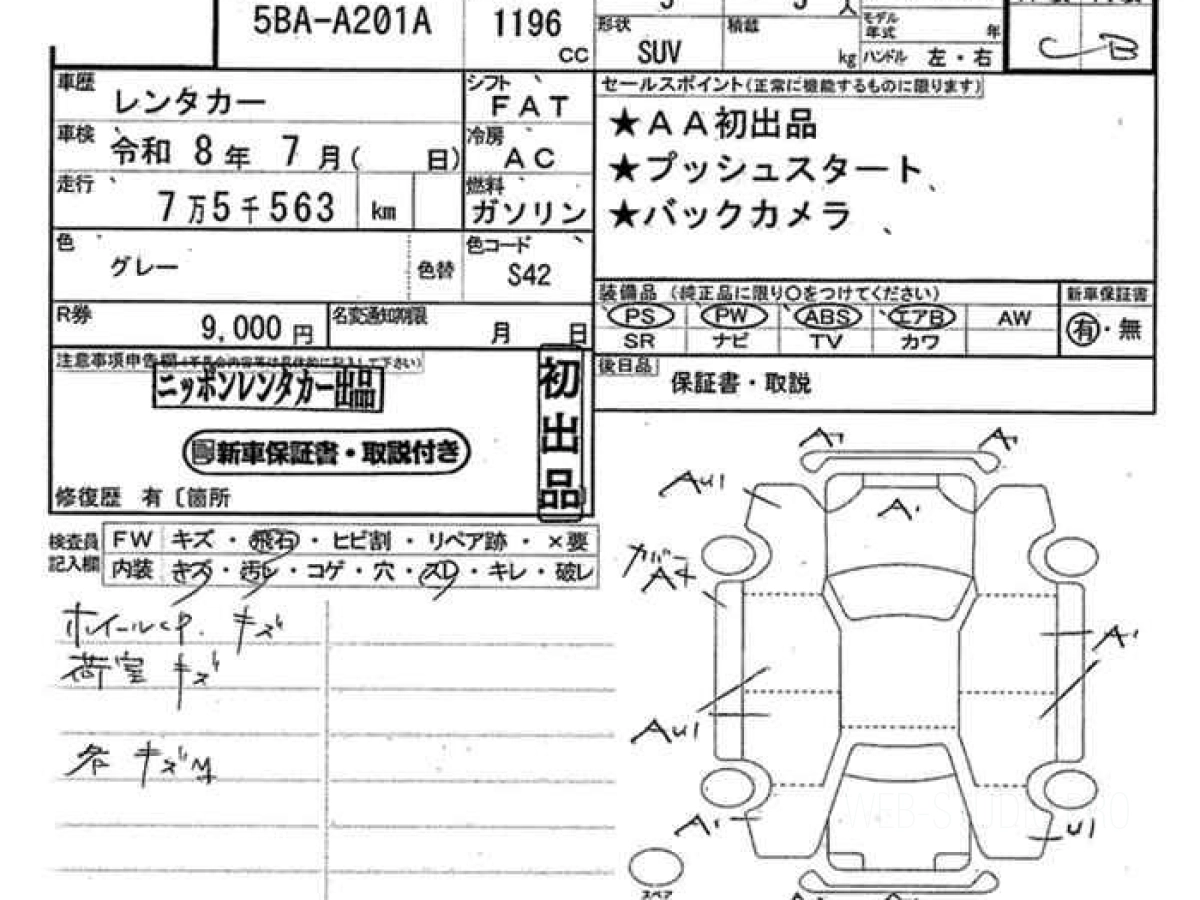 5BA-A201A
1196
cc
形状
SUV
積載
kg
モデル
年式
年
ハンドル 左・右
C B
車歴
レンタカー
シフト
FAT
車検
令和 8年 7月( 日)
冷房
AC
走行
7万5千563 km
燃料
ガソリン
色
グレー
色替
色コード
S42
R券
9,000円
名変通知期限
月 日
セールスポイント(正常に機能するものに限ります)
★AA初出品
★プッシュスタート
★バックカメラ
装備品 (純正品に限り〇をつけてください)
新車保証書
PS PW ABS エアB AW
SR ナビ TV カワ
有・無
後日品
保証書・取説
注意事項申告欄(不具合内容等は具体的に記入して下さい)
ニッポンレンタカー出品
新車保証書・取説付き
初出品
修復歴 有〔箇所
検査員
記入欄
FW キズ・飛石・ヒビ割・リペア跡・×要
内装 キズ・汚レ・コゲ・穴・スレ・キレ・破レ
ホイールcP. キズ
荷室 キズ
各 キズM
A1
A1
AU1
A1
カバー
A4
A1
AU1
A1
U1
スペア
WEB-STUDIO.PRO